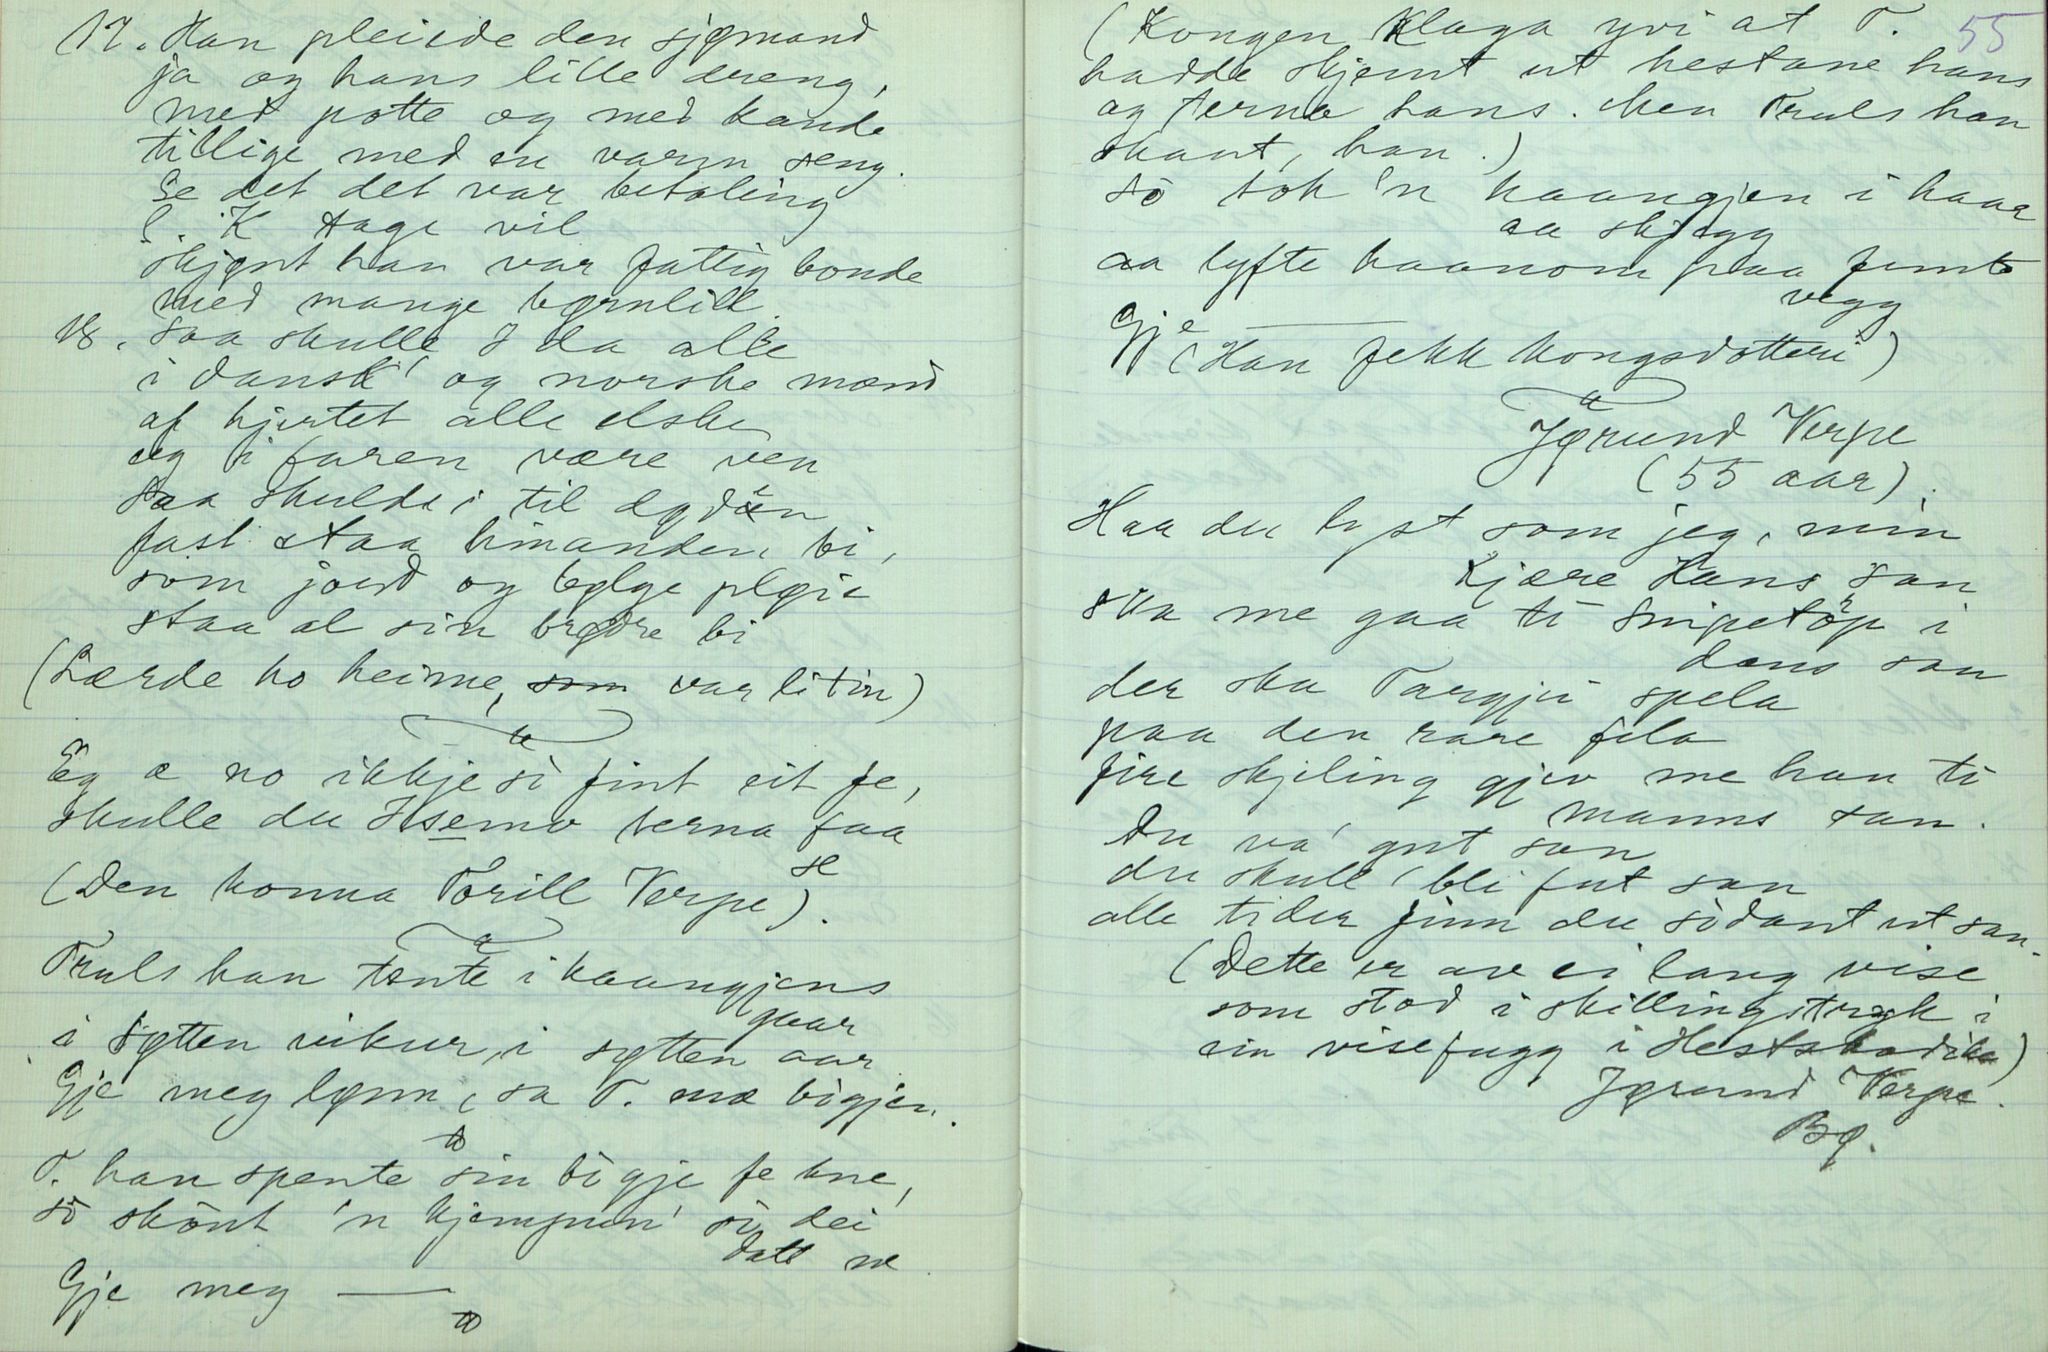 17. Han pleiede den sjømand
ja og hans lille dreng,
med potte og med kande
tillige med en varm seng.
Se det det var betaling
K Aage vil
skjønt han var fattig bonde
med mange børnlill.
18. Saa skulle I da alle
i dansk' og norske mænd
af hjertet alle elske
og i faren være ven
Saa skulde i til døden
fast staa hinanden bi,
som jord og bølge pløie
staa al sin brødre bi
(Lærde ho heime, som var litin)
Eg æ no ikkje sò fint eit fe,
skulle du Hsemo terna faa
se
(Den konna Torill Verpe).
Truls han tente i kaangjens
gaar
i søtten vikur, i søtten aar
Gje meg lønn, sa T. mæ bògjen.
T. han spente sin bògje fe kne,
sò skònt 'n kjempun' sò dei
datt ne
Gje meg —
55
(Kongen klaga yvi at T.
hadde skjemt ut hestane hans
og terna hans. Men Truls han
skant, han.)
sò tok 'n kaangjen i haar
aa skjegg
aa lyfte haanom paa femte
vegg
Gje —
(Han fekk kongsdotteri)
Jørund Verpe
(55 aar)
Haa du lyst som jeg, min
kjære Hans san
ska me gaa ti Snipetorp i
dans san
der ska Targjei spela
paa den rare fela
fire skjeling gjev me han ti
manns san.
Du va' gut san
du skull' bli fut san
alle tider finn du sòdant ut san.
(Dette er av ei lang vise
som stod i skillingstryk i
ein visefugg i Hestskodike)
Jørund Verpe.
Bø.